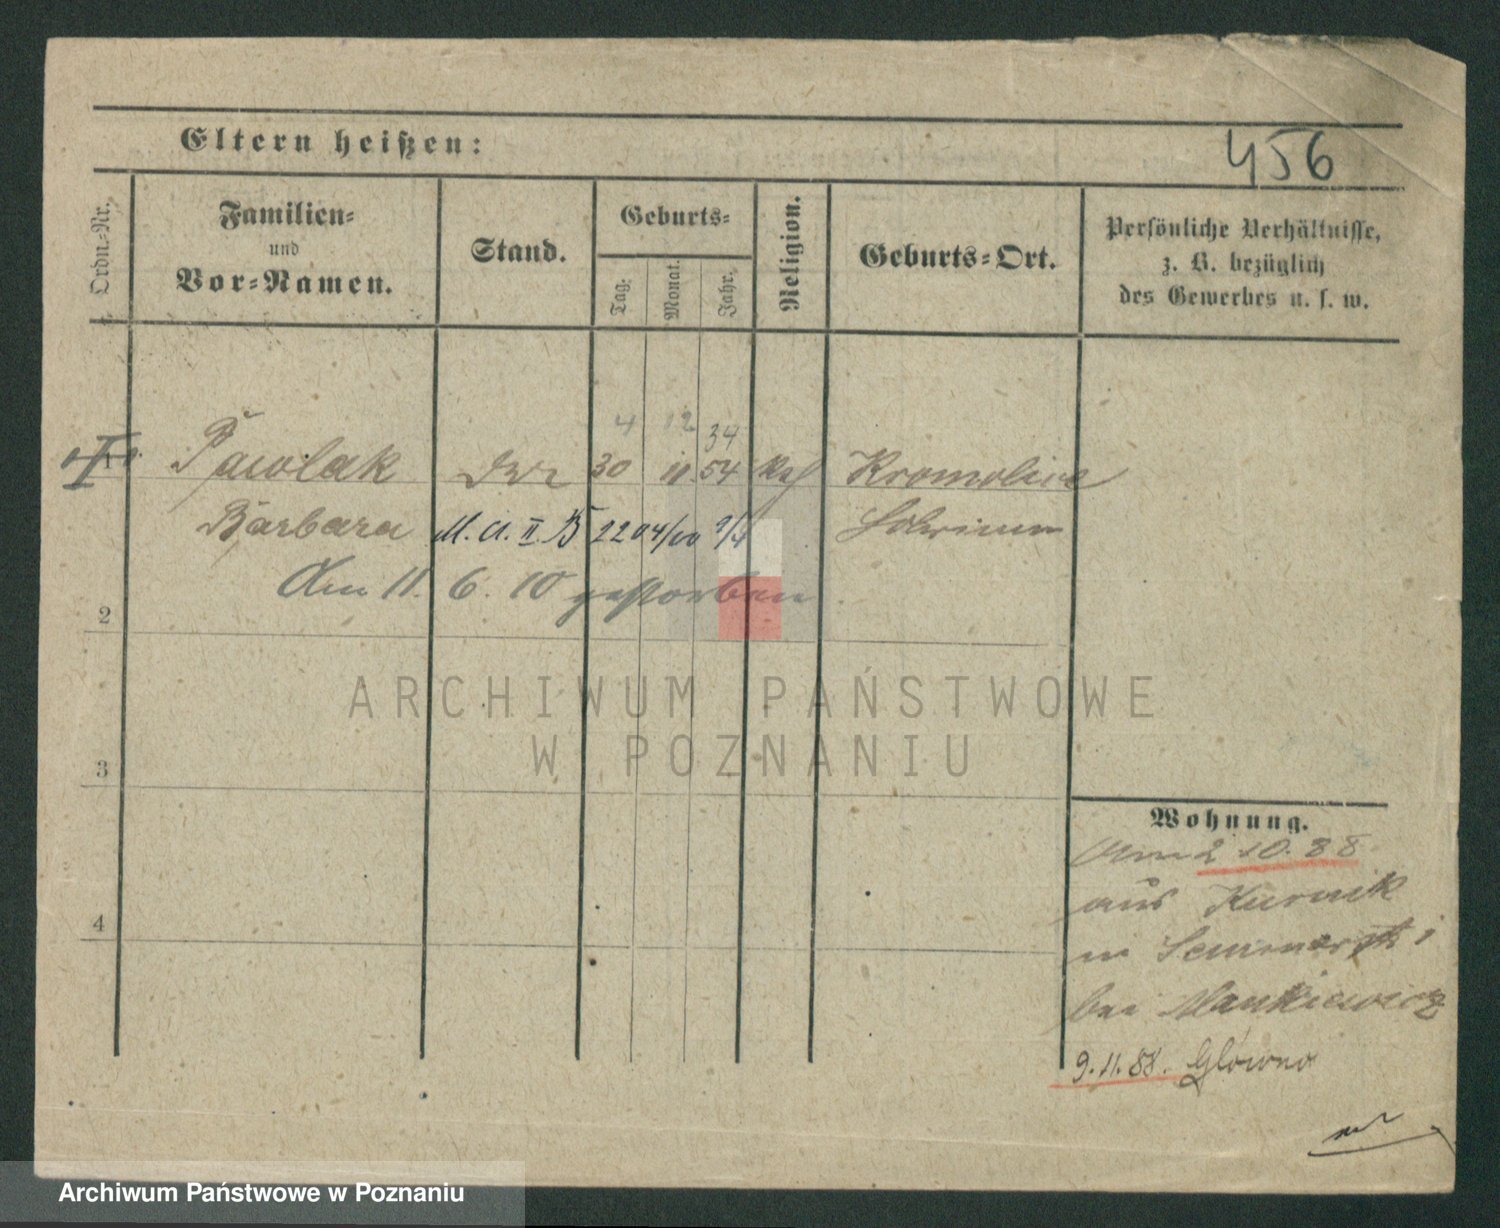 Eltern heißen:
456
Ordn.-Nr.
Familien-
und
Vor-Namen.
Stand.
Geburts-
Tag.
Monat.
Jahr.
Religion.
Geburts-Ort.
Persönliche Verhältnisse,
z. B. bezüglich
des Gewerbes u. s. w.
4 12 34
1 Pawlak 30 11. 54 Kath Kromolice
Barbara M. A. II B 2204/00
Am 11. 6. 10 gestorben
2
3
4
ARCHIWUM PAŃSTWOWE
W POZNANIU
Wohnung.
Am 2 10. 88
aus Kurnik
bei Mankiewicz
9. 11. 88. Glowno
Archiwum Państwowe w Poznaniu